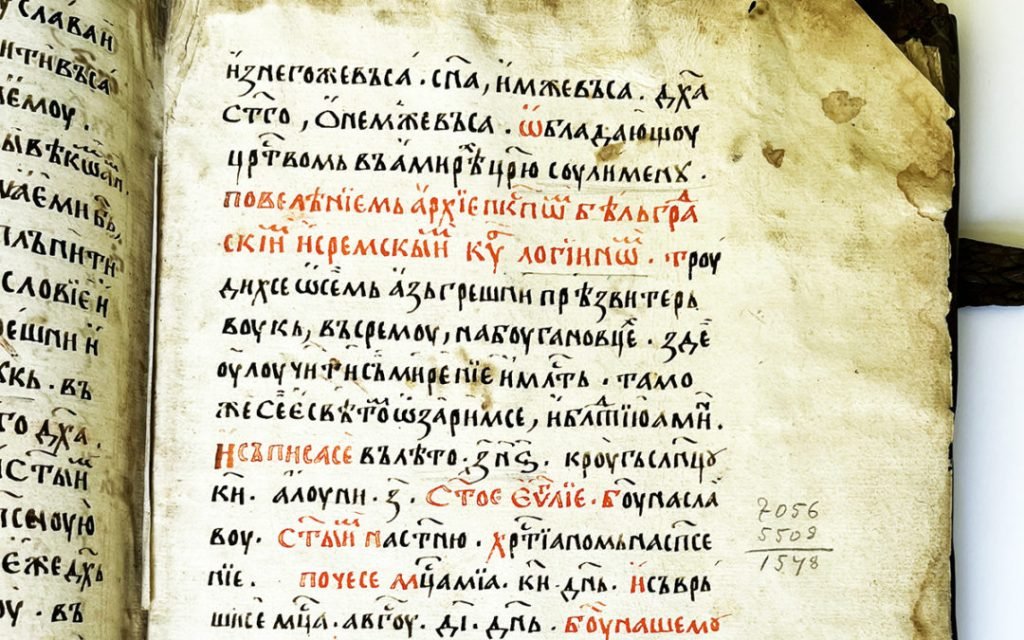 славаи
нтивъса
лемоу .
ꙗемни
плънити
словїе и
решни и
ккь . въ
го дх҃а .
стыи
еже дх҃ь
оу . въ
изнегожевъса . сп҃а , имжевъса . дх҃а
ст҃го , ѡнемжевъса . ѡбладающоу
цр҃твомь въамирѣ цр҃ю соулименꙋ .
повелѣнїемь архїепкпѡ бѣльгра
скїи исремскыи кѵ логіинѡ . троу
дихсе ѡсемь азьгрешни прѣзвитерь
воукь , въсремоу , набоугановце . зде
оулоучити съмиренїе имлть . тамо
жесеѥсвѣтоѡзаримсе , иблгтїюамн .
исъписасе вълѣто . зн҃ѕ . кроугьсл҃нцꙋ
кн . алоуни . з . стое еѵлїе . боунасла
воу . стыи настнїю . хр҃тїаномьнаспсе
нїе . почесе мцамїа . кн . днь . исъврь
шисе мц҃а . авгоу . дї . днь . боунашемꙋ
7056
5509
1548